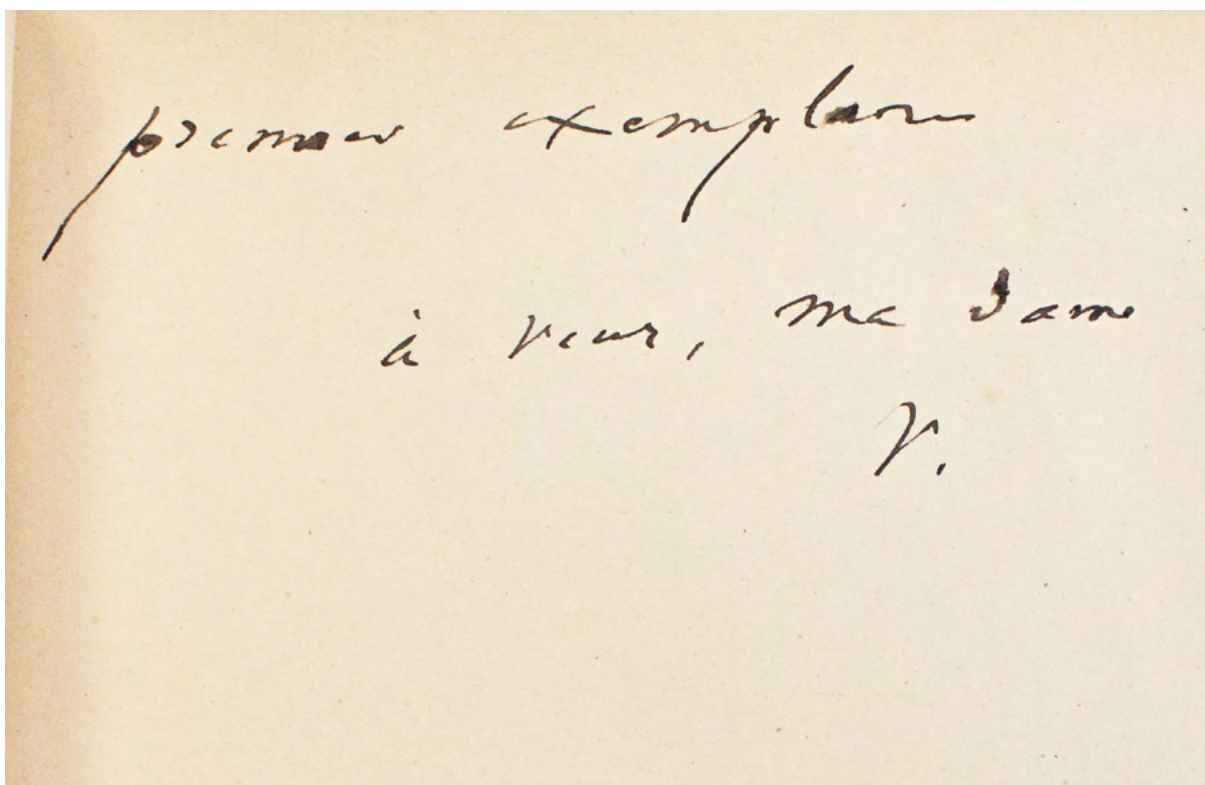 premier exemplaire
à vous, ma dame
V.